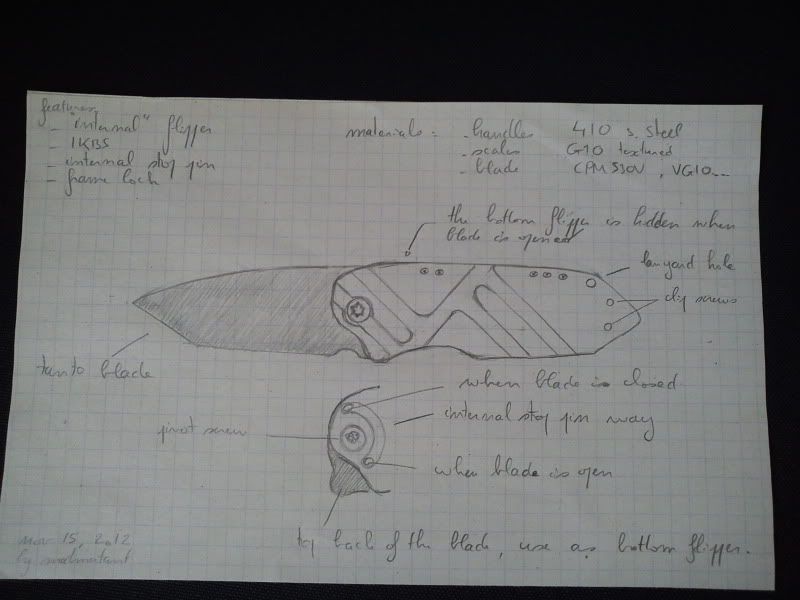 features
- "internal" flipper
- IKBS
- internal stop pin
- frame lock
materials :
- handles 410 s. steel
- scales G10 textured
- blade CPM S30V, VG10...
the bottom flipper is hidden when
blade is opened
lanyard hole
clip screws
tanto blade
when blade is closed
internal stop pin way
pivot screw
when blade is open
top back of the blade, use as bottom flipper.
nov 15, 2012
by